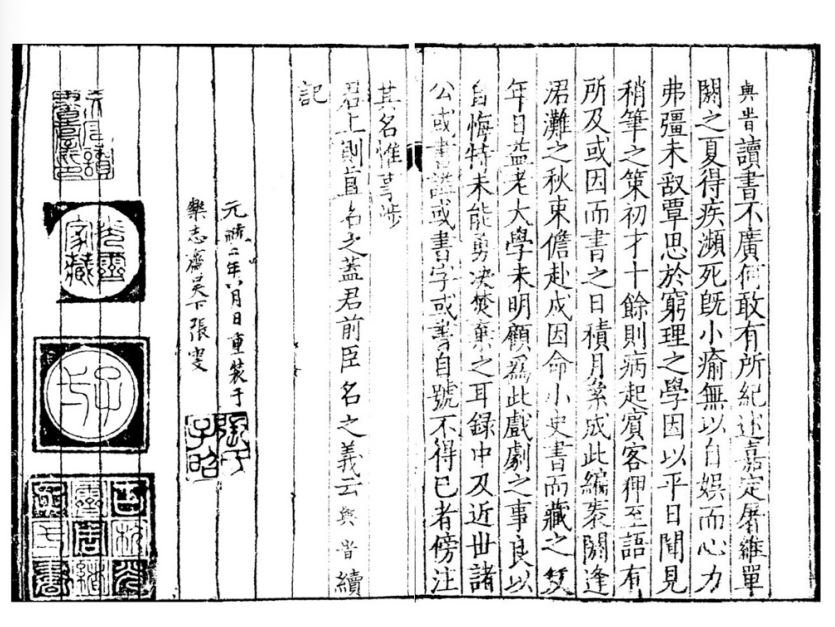 與旹讀書不廣何敢有所紀述嘉定屠維單
閼之夏得疾瀕死旣小瘉無以自娛而心力
弗彊未敢覃思於窮理之學因以平日聞見
稍筆之策初才十餘則病起賓客狎至語有
所及或因而書之日積月絫成此編袠閼逢
涒灘之秋束儋赴戍因命小史書而藏之笈
年日益老大學未明顧爲此戲劇之事良以
自悔特未能勇决焚棄之耳録中及近世諸
公或書諡或書字或書自號不得已者傍注
其名惟事涉
君上則直名之蓋君前臣名之義云與旹續
記
元統二年八月日重裝于
樂志齋吳下張雯
家藏